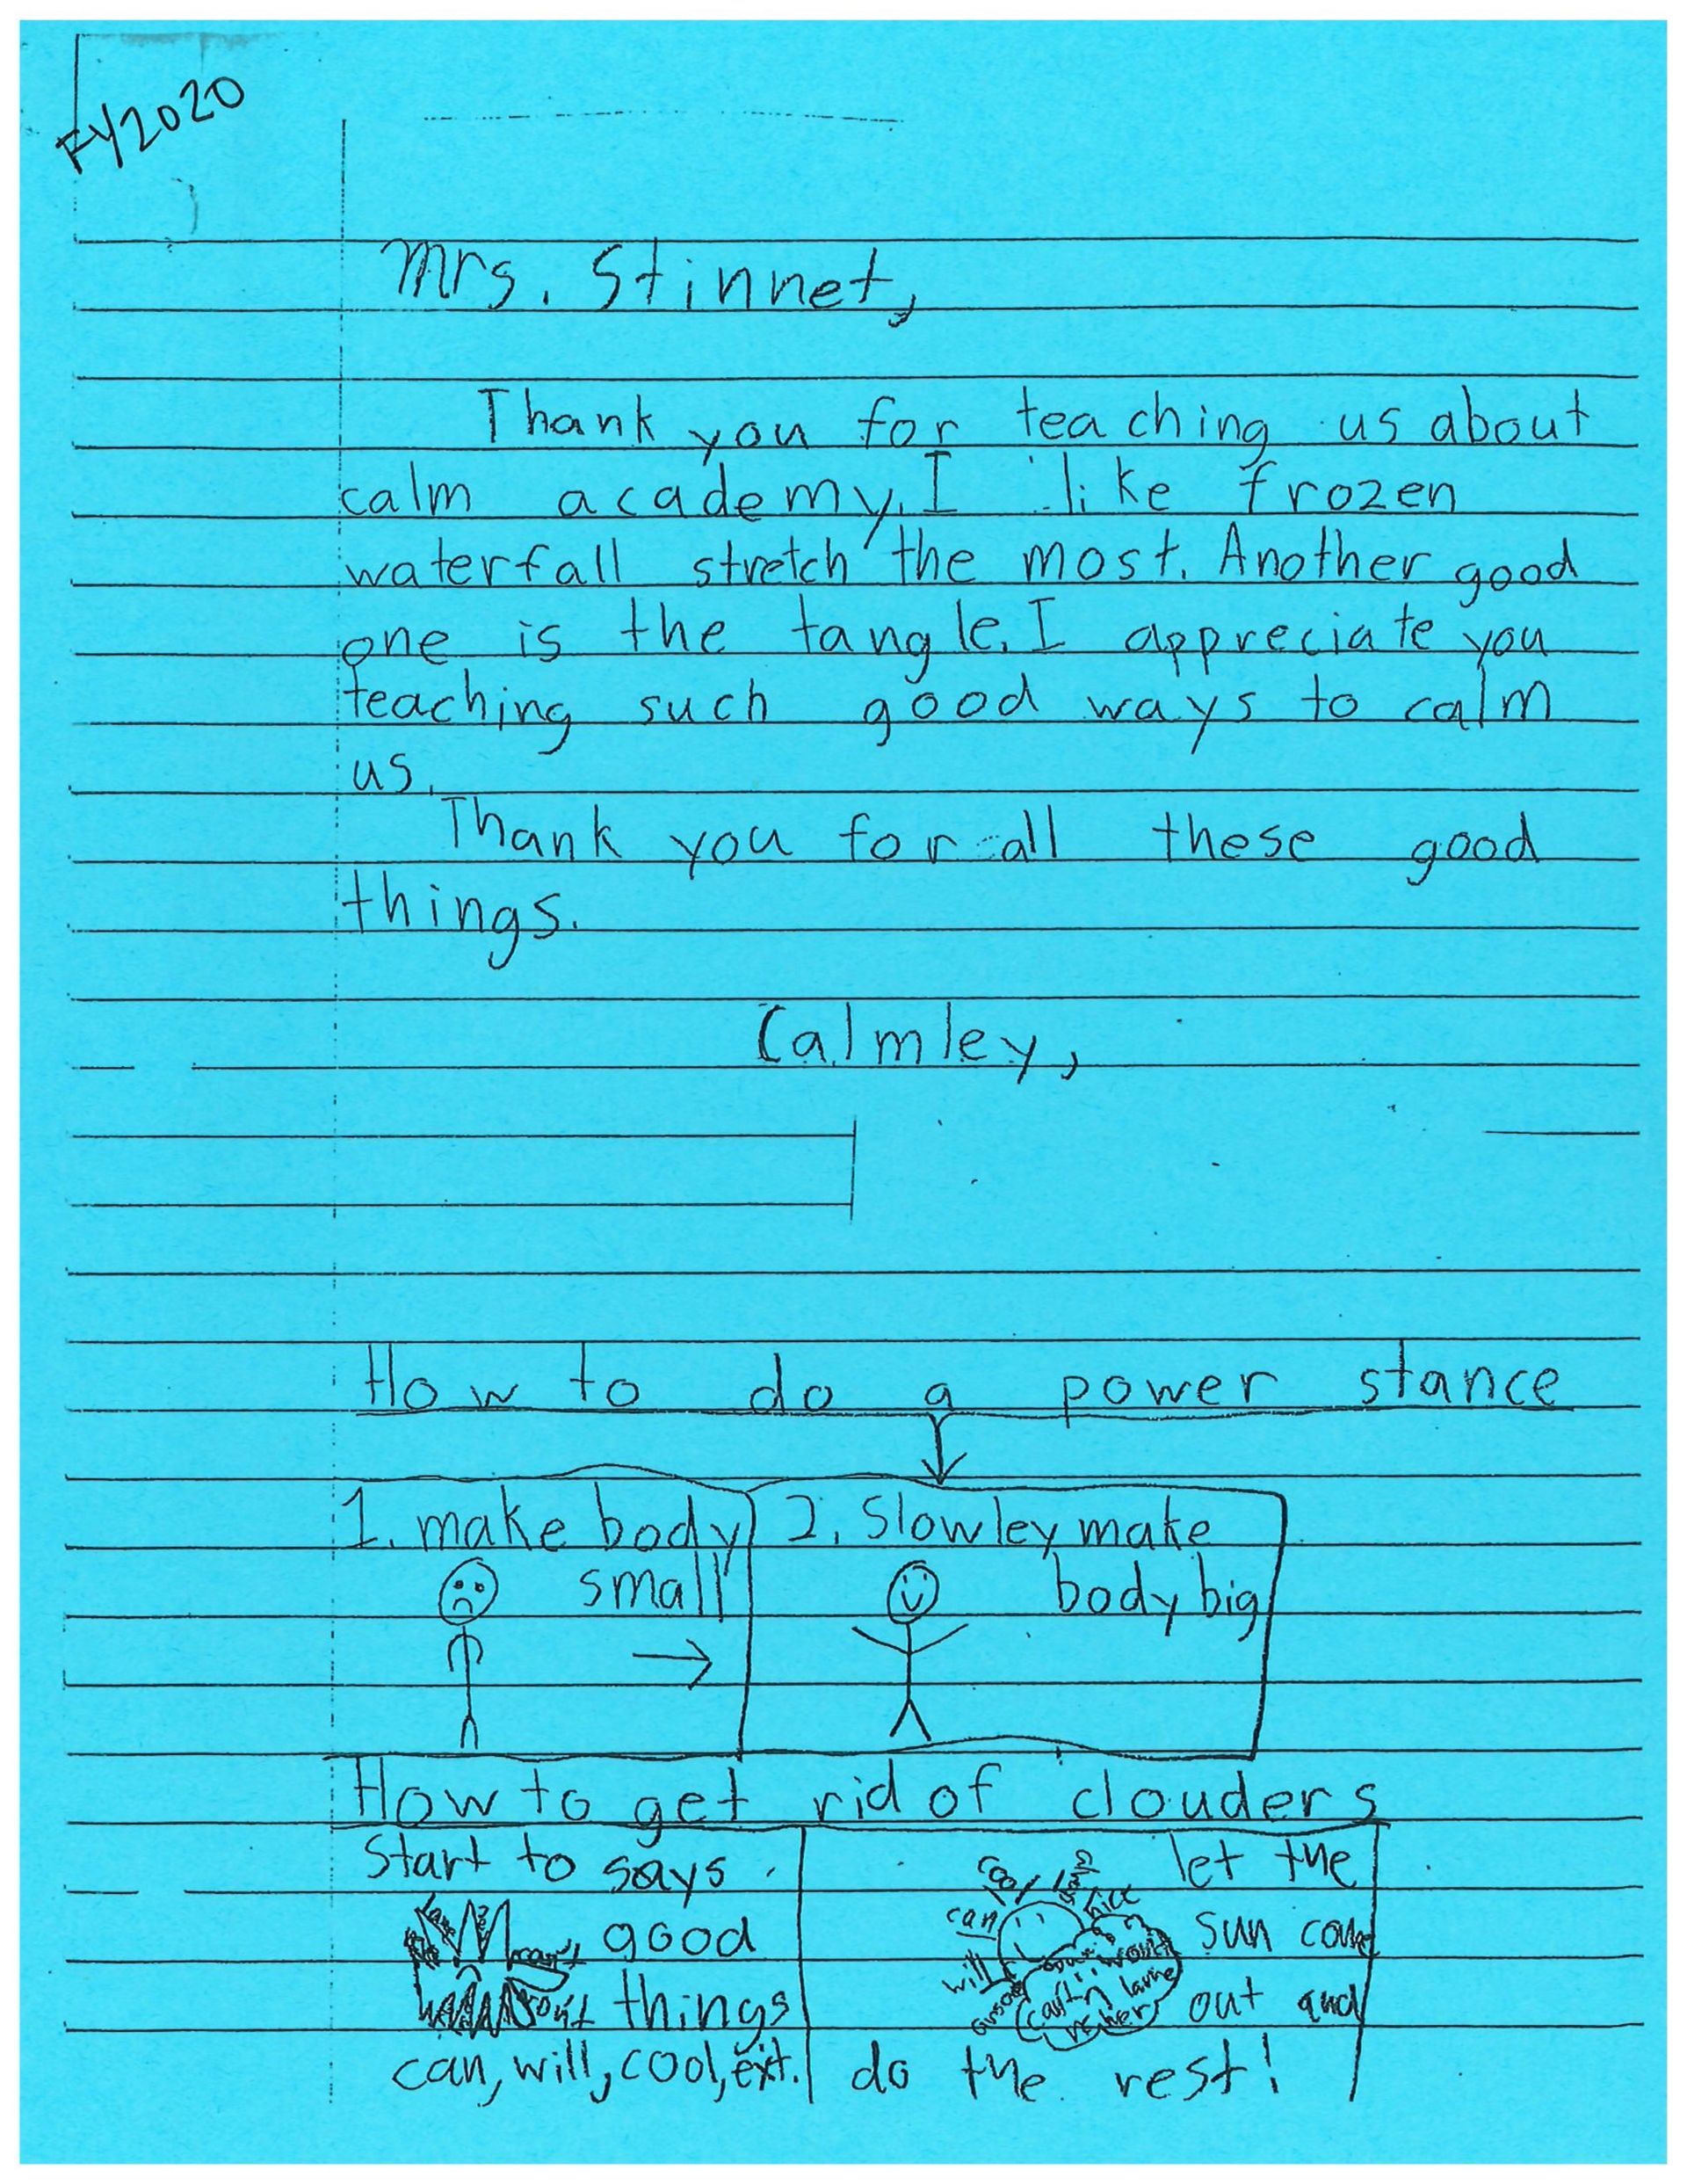 FY2020
Mrs. Stinnet,
Thank you for teaching us about
calm academy. I like frozen
waterfall stretch the most. Another good
one is the tangle. I appreciate you
teaching such good ways to calm
us.
Thank you for all these good
things.
Calmley,
How to do a power stance
1. make body
small
2. Slowley make
body big
How to get rid of clouders
Start to says
good
things
can, will, cool, ext.
can't
don't
let the
sun come
out and
do the rest!
cool
nice
can
will
can't
won't
lame
never